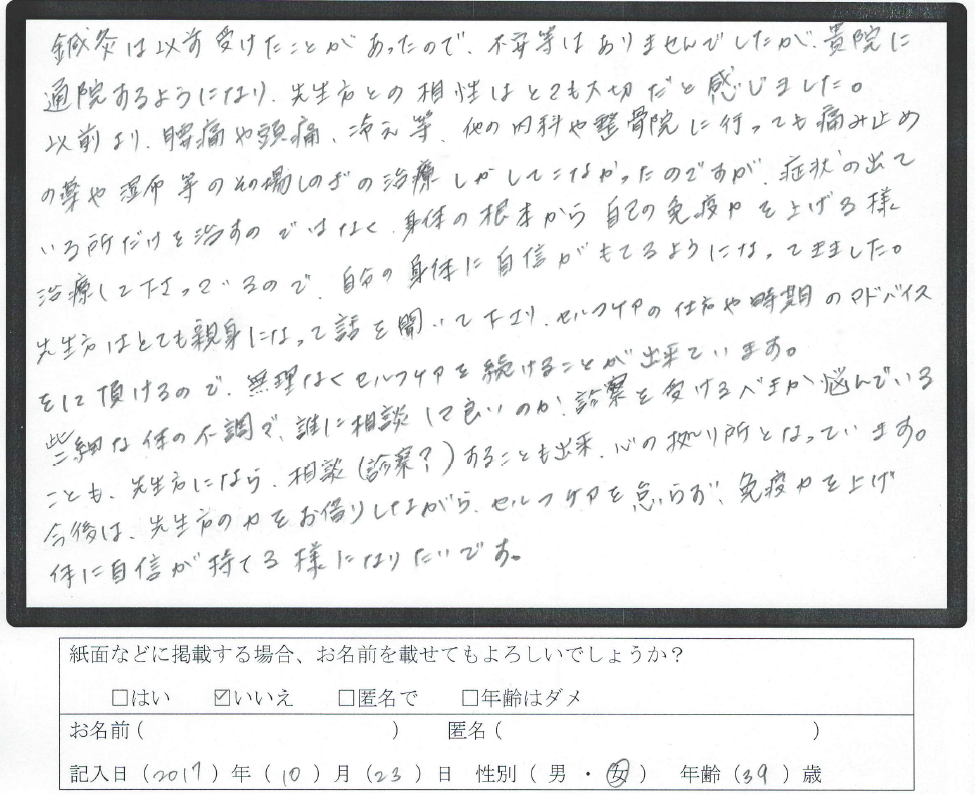 鍼灸は以前受けたことがあったので、不安等はありませんでしたが、貴院に
通院するようになり、先生方との相性はとても大切だと感じました。
以前より、腰痛や頭痛、冷え等、他の内科や整骨院に行っても痛み止め
の薬や湿布等のその場しのぎの治療しかしてこなかったのですが、症状の出て
いる所だけを治すのではなく、身体の根本から自己の免疫力を上げる様
治療して下さっているので、自分の身体に自信がもてるようになってきました。
先生方はとても親身になって話を聞いて下さり、セルフケアの仕方や時期のアドバイス
をして頂けるので、無理なくセルフケアを続けることが出来ています。
些細な体の不調で、誰に相談して良いのか、診察を受けるべきか悩んでいる
ことも、先生方になら、相談(診察?)することも出来、心の拠り所となっています。
今後は、先生方の力をお借りしながら、セルフケアを怠らず、免疫力を上げ
体に自信が持てる様になりたいです。
紙面などに掲載する場合、お名前を載せてもよろしいでしょうか?
□はい ☑いいえ □匿名で □年齢はダメ
お名前( ) 匿名( )
記入日(2017)年(10)月(23)日 性別(男・女) 年齢(39)歳